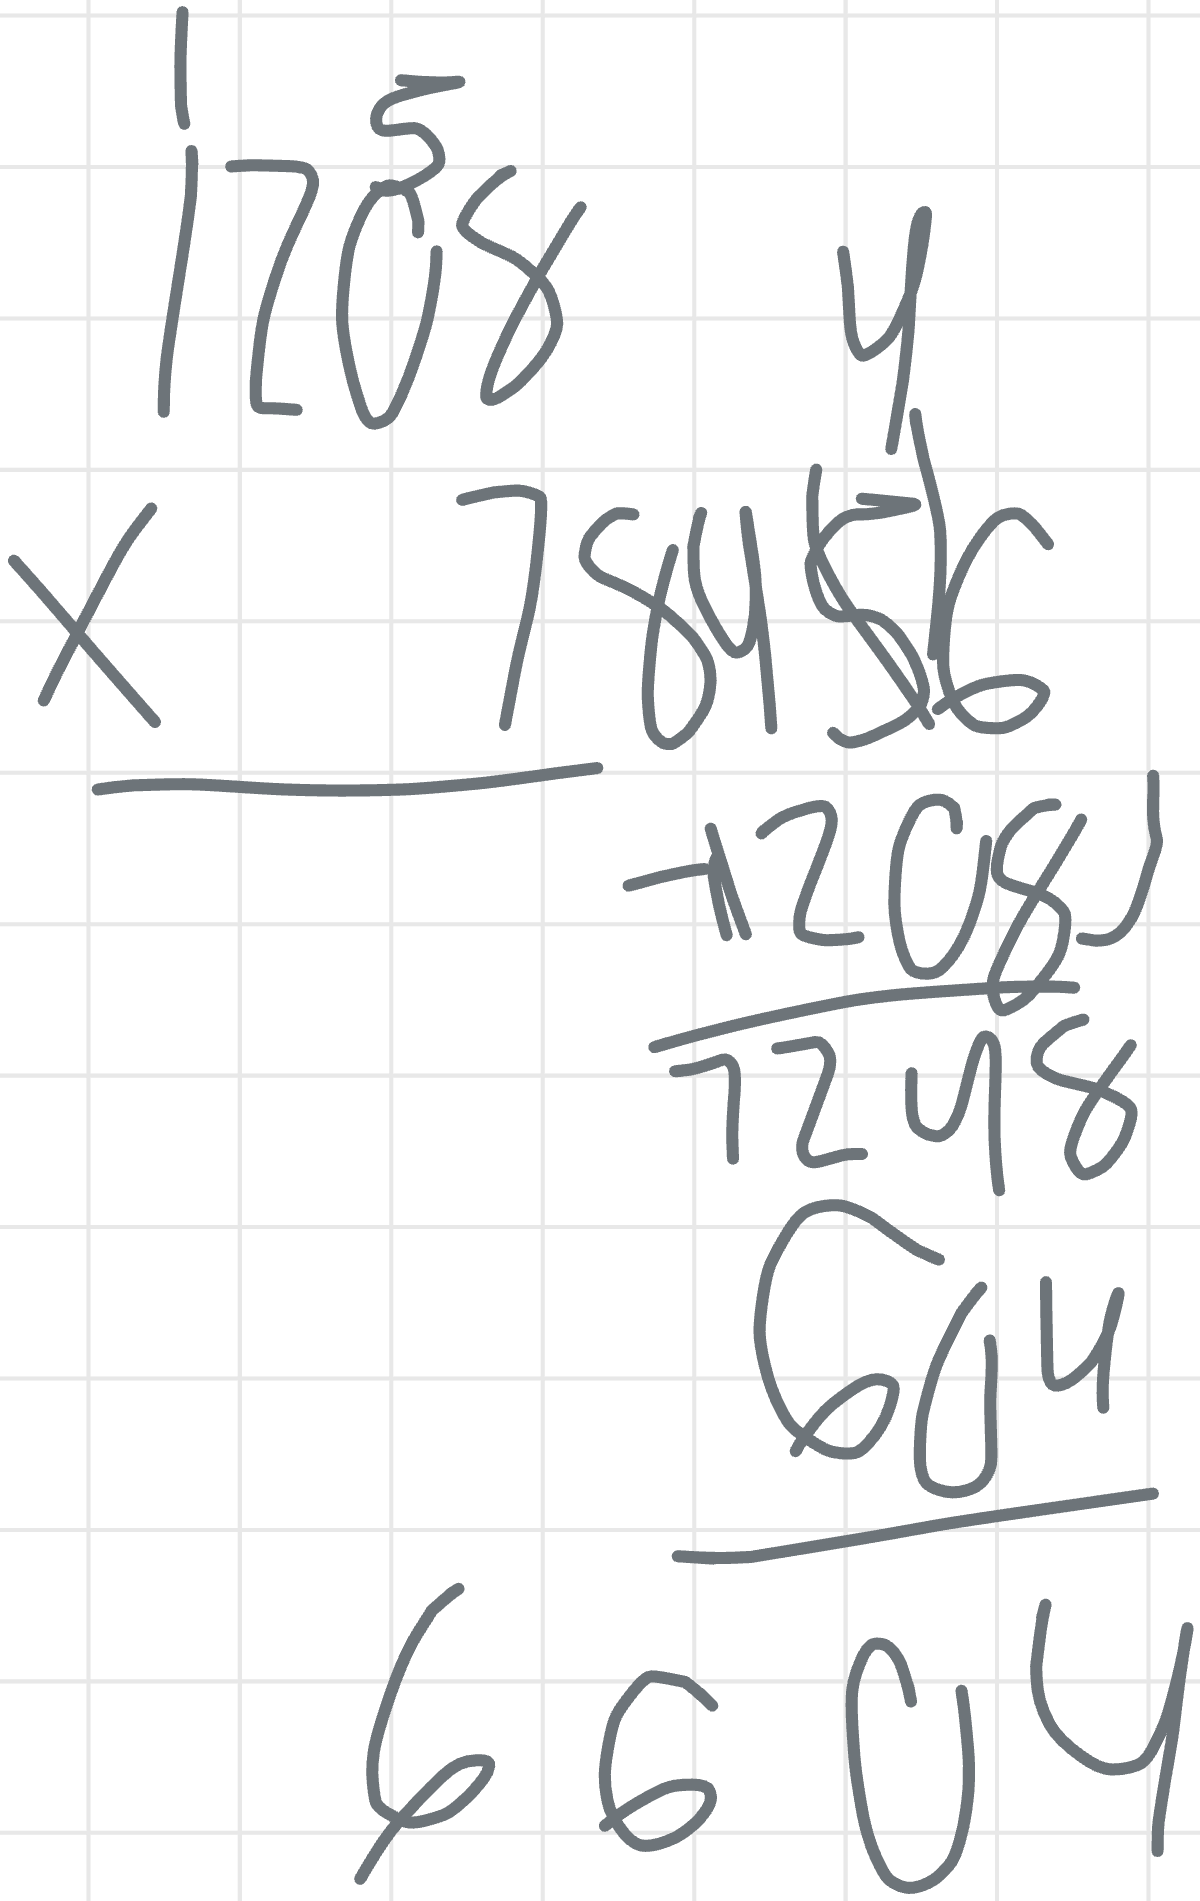 1 5
1208
4
x 78456
+1208
7248
604
6604